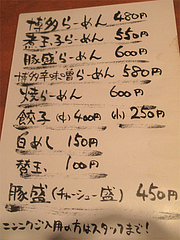 博多らーめん 480円
煮玉子らーめん 550円
豚盛らーめん 600円
博多辛味噌らーめん 580円
焼らーめん 600円
餃子(大)400円 (小)250円
白めし 150円
替玉 100円
豚盛(チャーシュー盛) 450円
ニンニクご入用の方はスタッフまで!